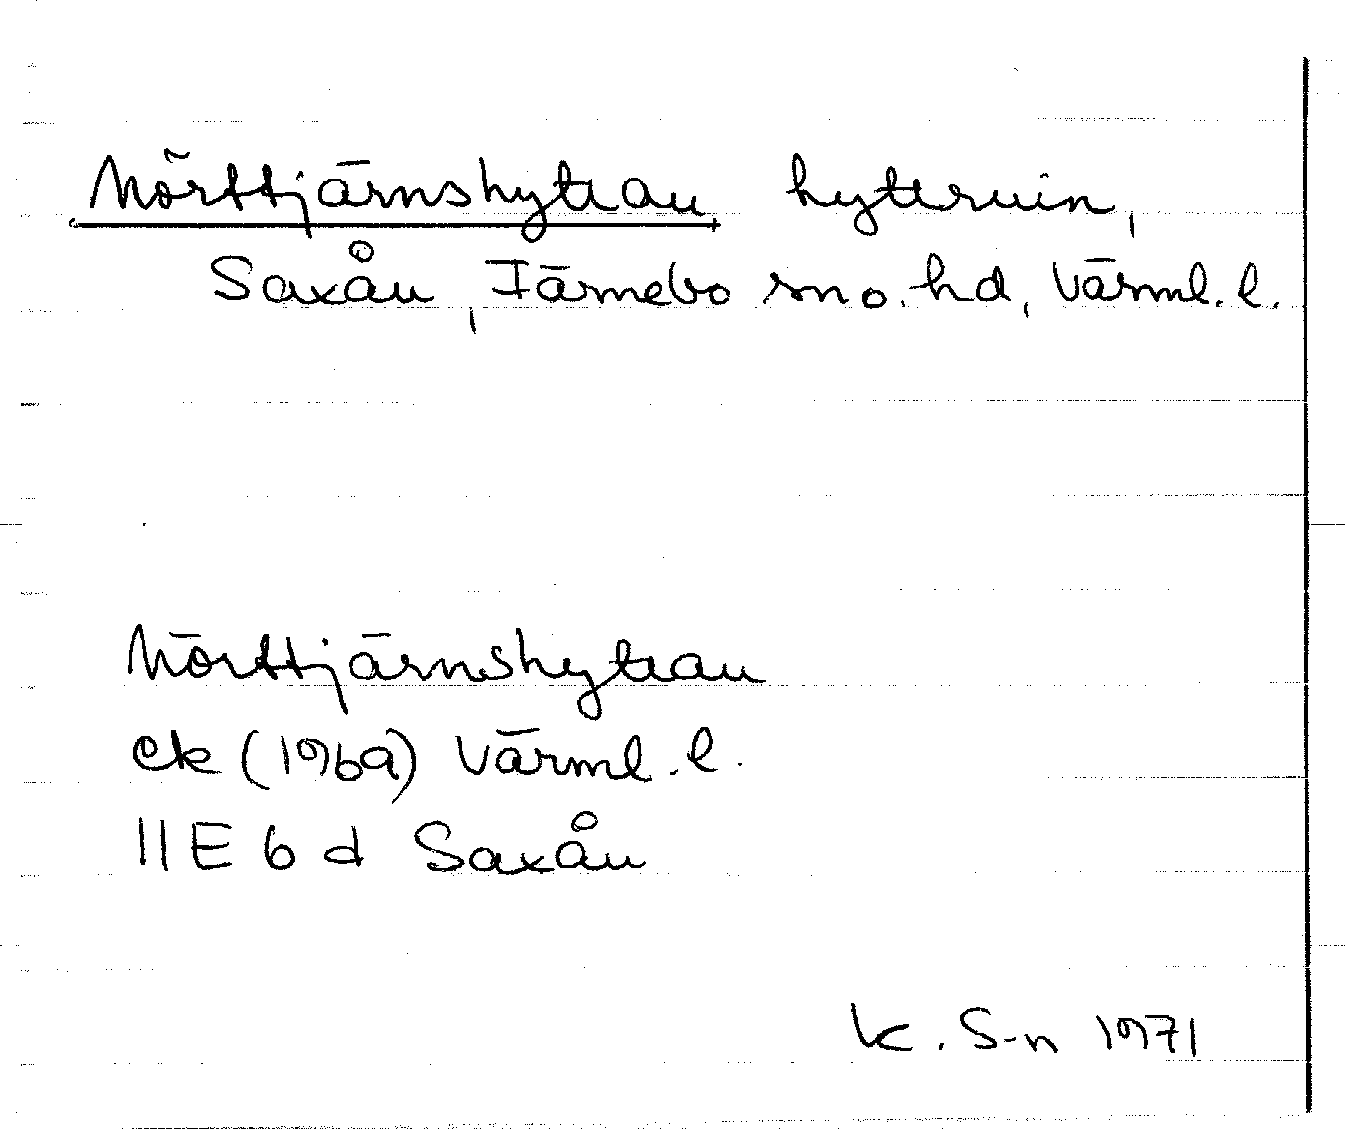 Mörttjärnshyttan hytteruin,
Saxån, Färnebo sn o. hd, Värml. l.
Mörttjärnshyttan
ek (1969) Värml. l.
11 E 6 d Saxån
K. S-n 1971